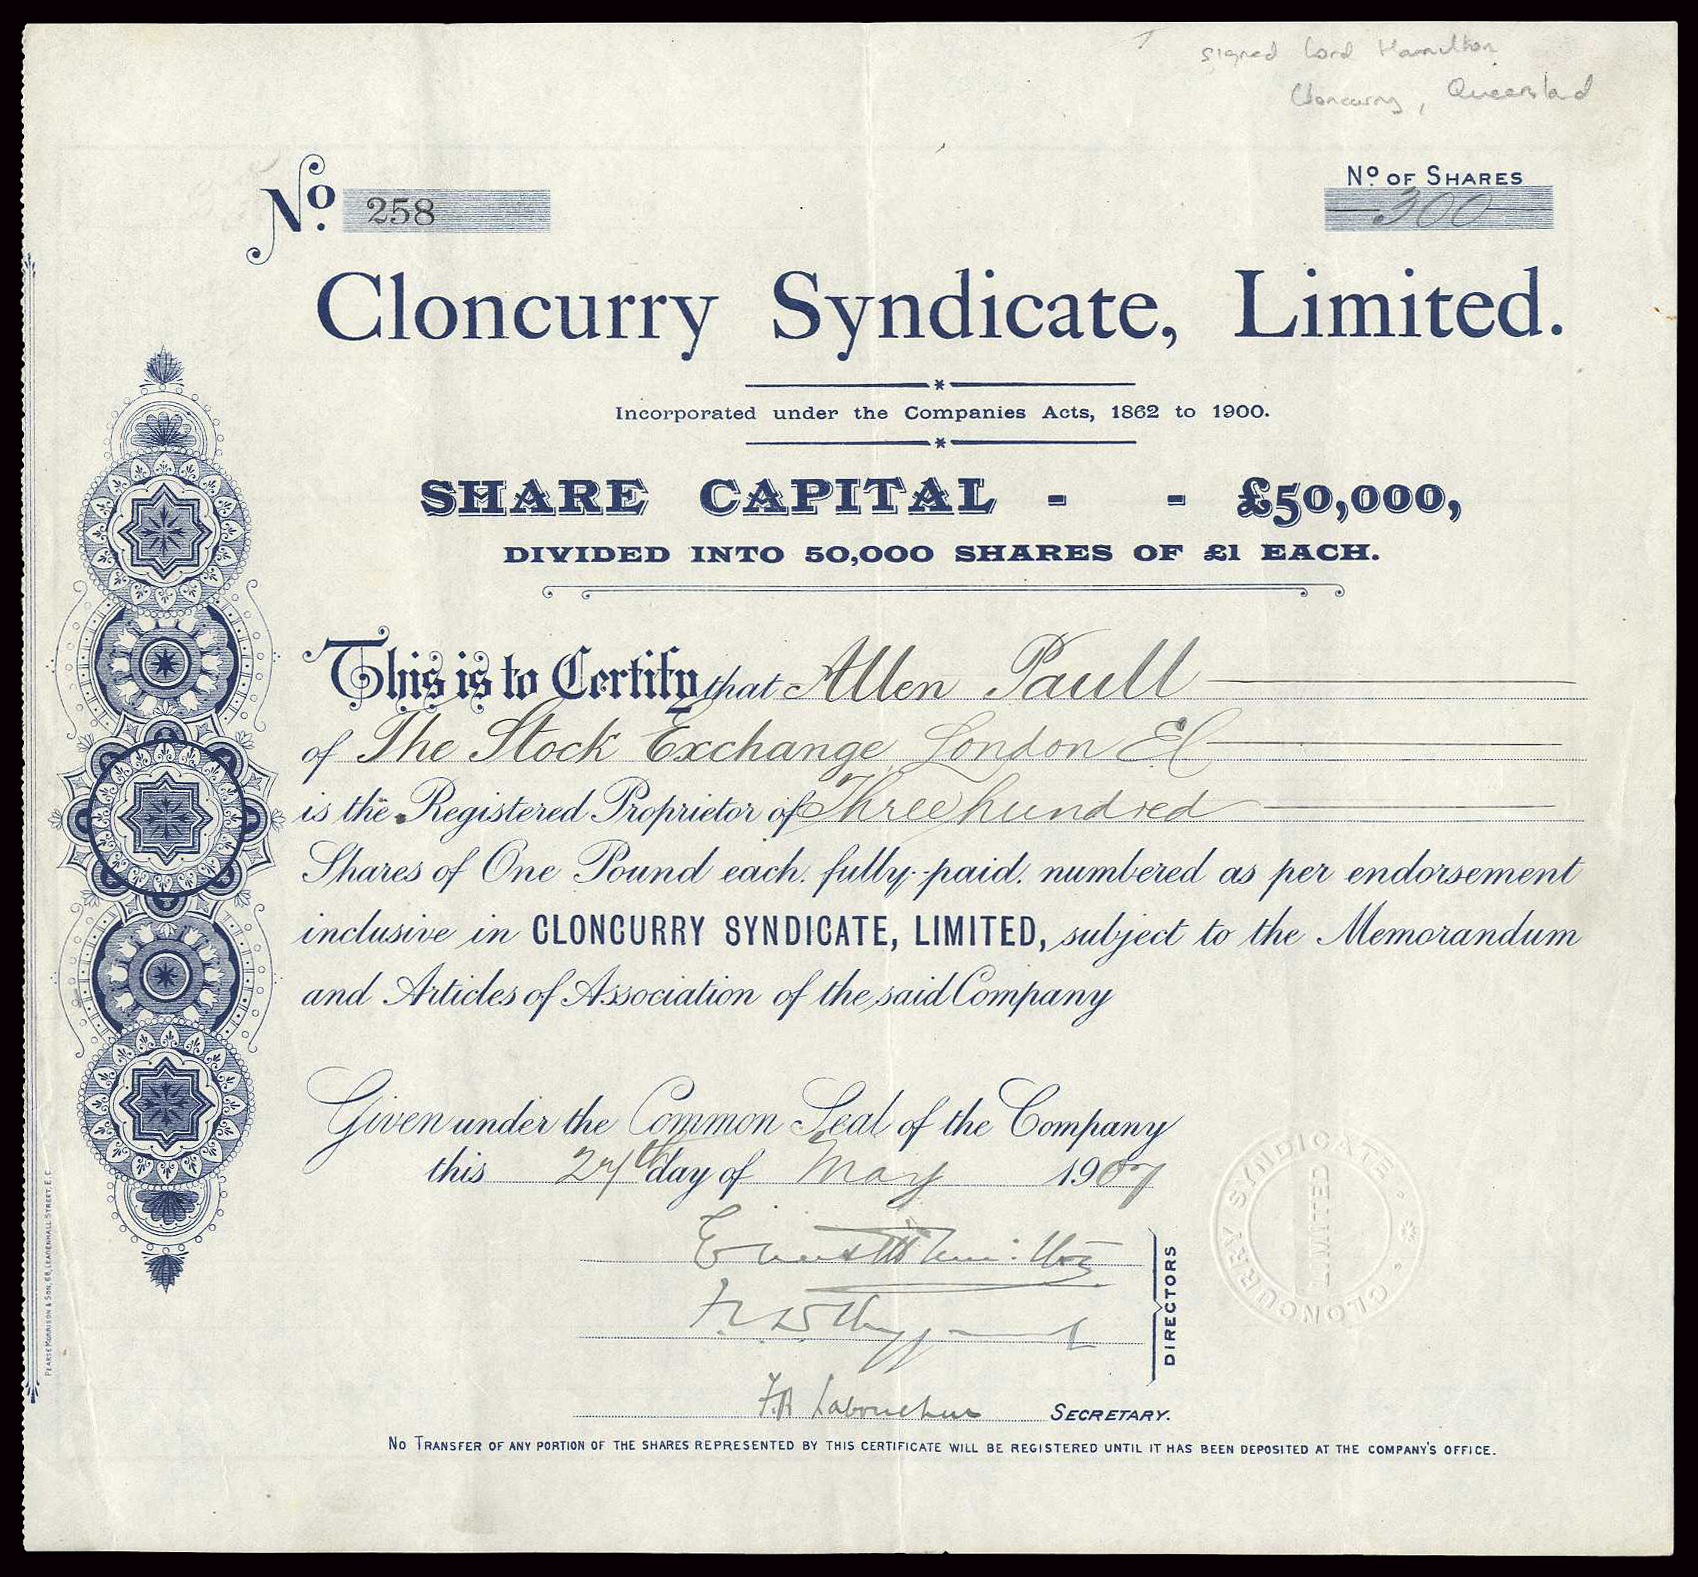 signed Lord Hamilton
Cloncurry, Queensland
No. 258
No. OF SHARES
300
Cloncurry Syndicate, Limited.
Incorporated under the Companies Acts, 1862 to 1900.
SHARE CAPITAL - - £50,000,
DIVIDED INTO 50,000 SHARES OF £1 EACH.
This is to Certify that Allen Paull
of The Stock Exchange London E.C.
is the Registered Proprietor of Three hundred
Shares of One Pound each, fully-paid, numbered as per endorsement
inclusive in CLONCURRY SYNDICATE, LIMITED, subject to the Memorandum
and Articles of Association of the said Company
Given under the Common Seal of the Company
this 27th day of May 1907
Ernest Hamilton
DIRECTORS
F.A. Labouchere SECRETARY.
CLONCURRY SYNDICATE
LIMITED
No TRANSFER OF ANY PORTION OF THE SHARES REPRESENTED BY THIS CERTIFICATE WILL BE REGISTERED UNTIL IT HAS BEEN DEPOSITED AT THE COMPANY'S OFFICE.
PEARSE MORRISON & SON, 68, LEADENHALL STREET, E.C.